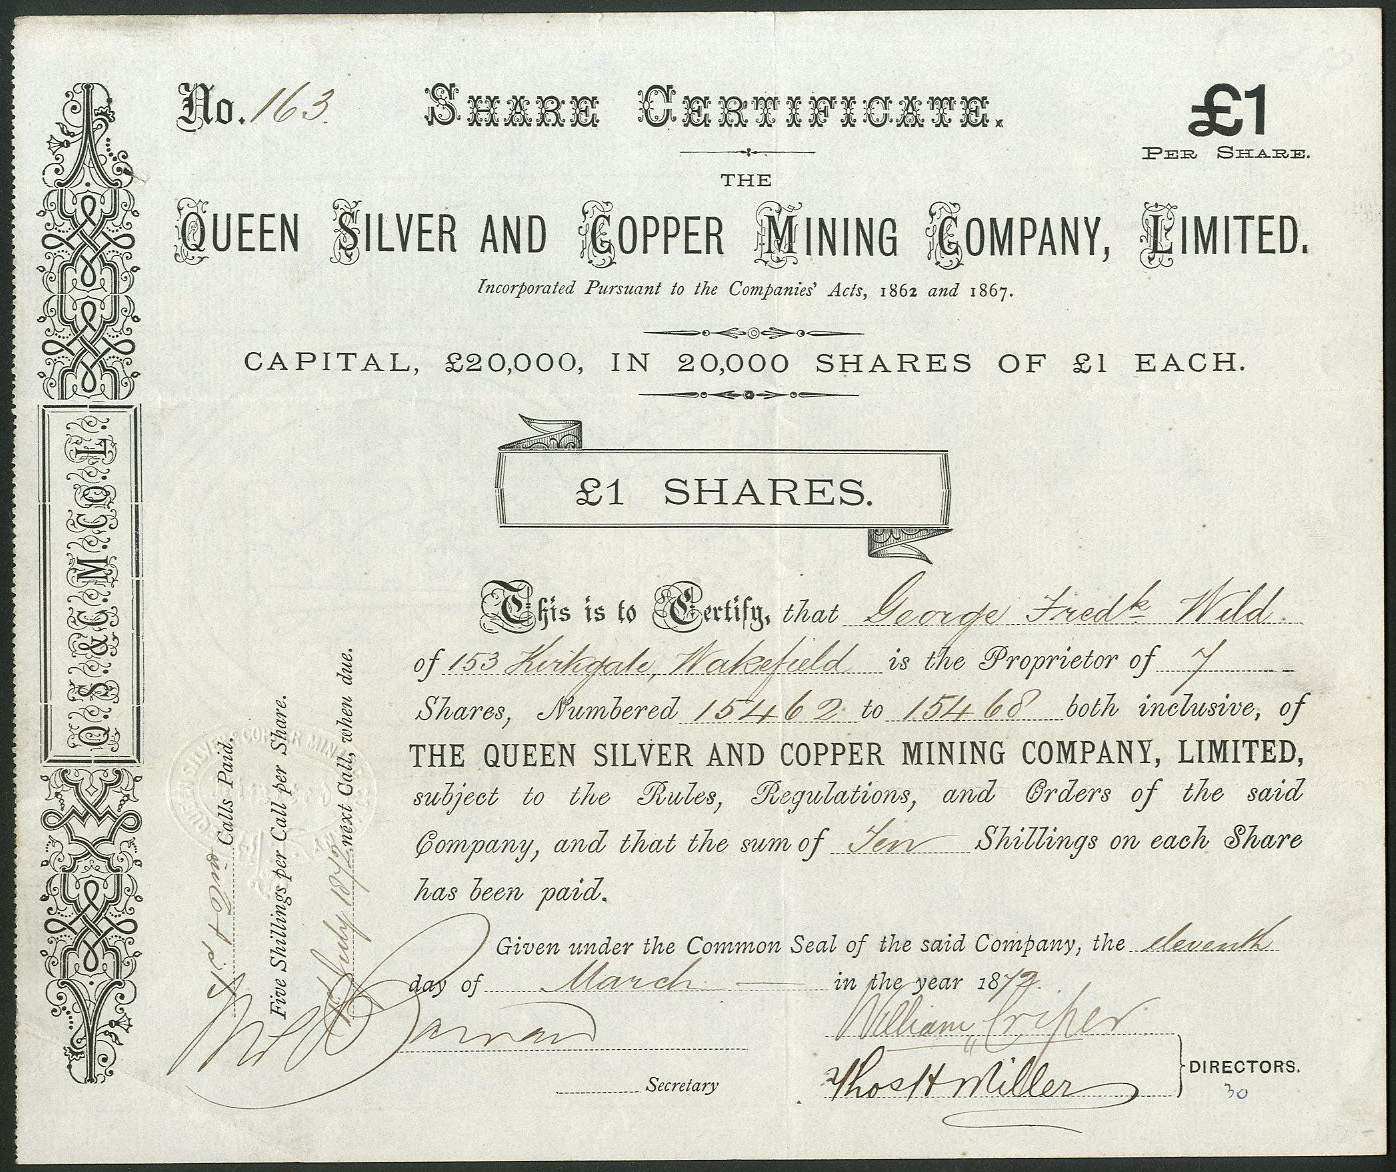 No. 163. SHARE CERTIFICATE. £1
PER SHARE.
THE
QUEEN SILVER AND COPPER MINING COMPANY, LIMITED.
Incorporated Pursuant to the Companies' Acts, 1862 and 1867.
CAPITAL, £20,000, IN 20,000 SHARES OF £1 EACH.
£1 SHARES.
This is to Certify, that George Fredk Wild
of 153 Kirkgate, Wakefield is the Proprietor of 7
Shares, Numbered 15462 to 15468 both inclusive, of
THE QUEEN SILVER AND COPPER MINING COMPANY, LIMITED,
subject to the Rules, Regulations, and Orders of the said
Company, and that the sum of Ten Shillings on each Share
has been paid.
Given under the Common Seal of the said Company, the eleventh
day of March in the year 1872.
William Criper
Thos H Miller
DIRECTORS.
30
Secretary
Q.S. & C.M. CO. L.
1st & 2nd Calls Paid.
Five Shillings per Call per Share.
1 July 1872 next Call, when due.